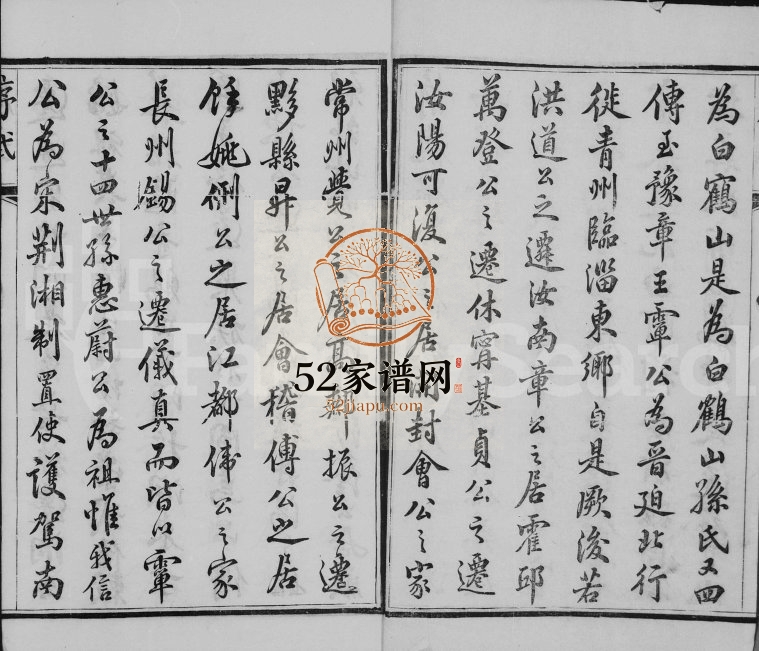 為白鶴山是為白鶴山孫氏又四
傳至豫章王䨇公為晉廹北行
徙青州臨淄東鄉自是厥後若
洪道公之遷汝南章公之居霍邱
萬登公之遷休寗基貞公之遷
汝陽可復公之居開封會公之家
常州賛公之居 振公之遷
黟縣昇公之居會稽傅公之居
餘姚俐公之居江都俸公之家
長州錫公之遷儀真而皆以䨇
公之十四世孫惠蔚公為祖惟我信
公為宋荆湘制置使護駕南
序弍
52家谱网
52jiapu.com
FamilySearch